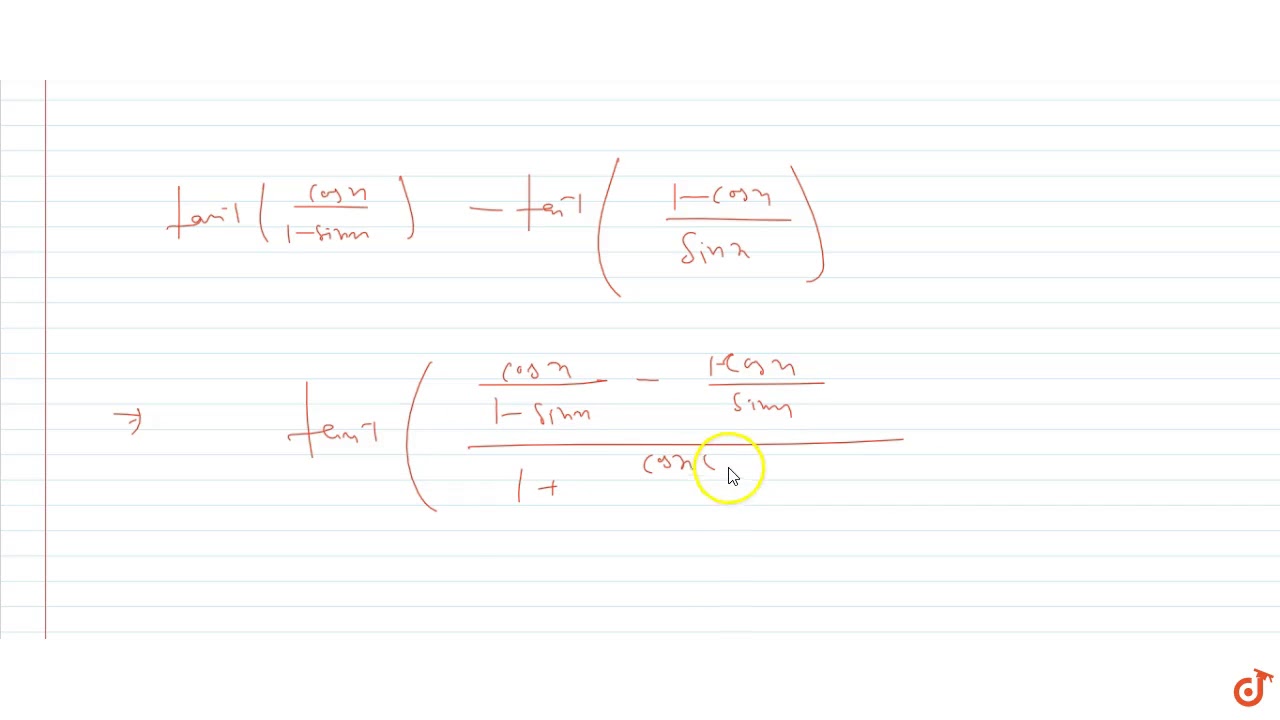 tan⁻¹ ( cos x / 1 - sin x ) - tan⁻¹ ( 1 - cos x / sin x )
⇒ tan⁻¹ ( cos x / 1 - sin x - 1 - cos x / sin x
1 + cos x (
d